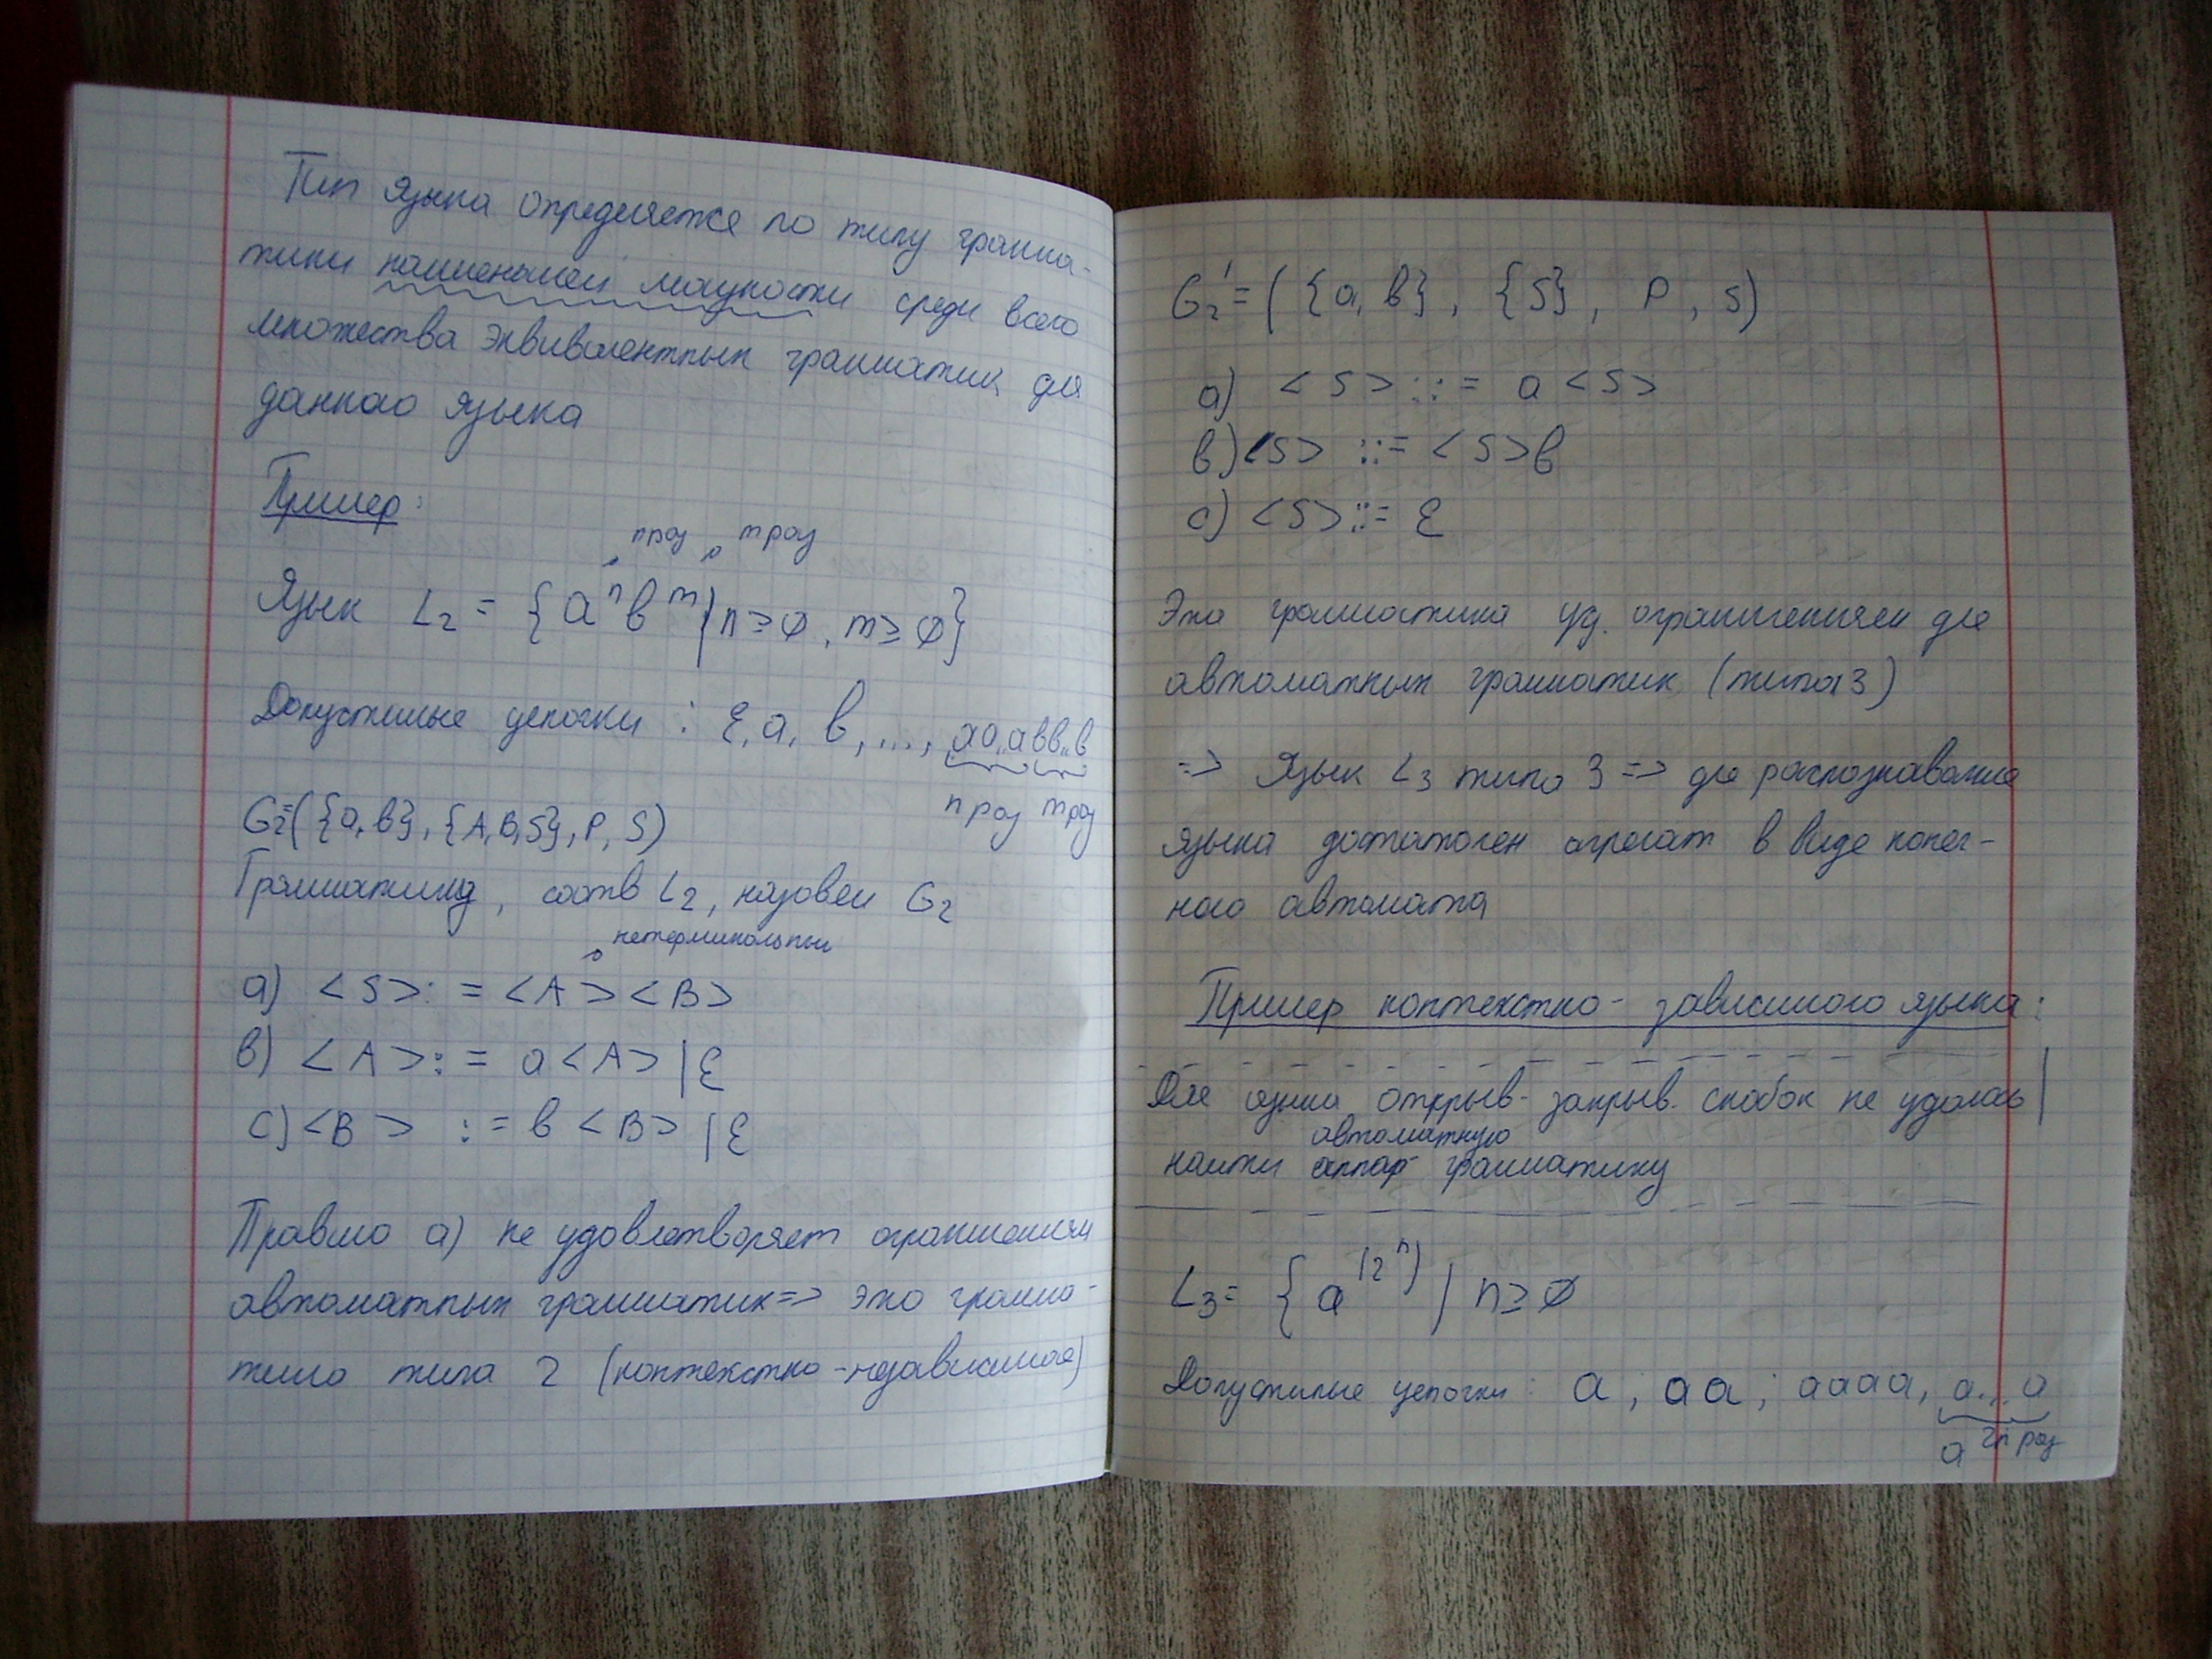 Тип языка определяется по типу грамма-
тики наименьшей мощности среди всего
множества эквивалентных грамматик для
данного языка
Пример:
n раз m раз
Язык L₂ = {aⁿbᵐ | n ≥ ∅, m ≥ ∅}
Допустимые цепочки : ε, a, b, ..., aa..abb..b
n раз m раз
G₂=({a, b}, {A, B, S}, P, S)
Грамматику, соотв L₂, назовем G₂
нетерминальный
a) <S> : = <A><B>
b) <A> : = a<A> | ε
c) <B> : = b<B> | ε
Правило a) не удовлетворяет ограничениям
автоматных грамматик => это грамма-
тика типа 2 (контекстно-независимая)
G₂' = ({a, b}, {S}, P, S)
a) <S> ::= a<S>
b) <S> ::= <S>b
c) <S> ::= ε
Эта грамматика уд. ограничениям для
автоматных грамматик (типа 3)
=> Язык L₃ типа 3 => для распознавания
языка достаточен агрегат в виде конеч-
ного автомата
Пример контекстно-зависимого языка:
Для языка открыв- закрыв. скобок не удалось
автоматную
найти грамматику
L₃ = {a^(2ⁿ) | n ≥ ∅
Допустимые цепочки : a ; aa ; aaaa, a...a
a 2n раз